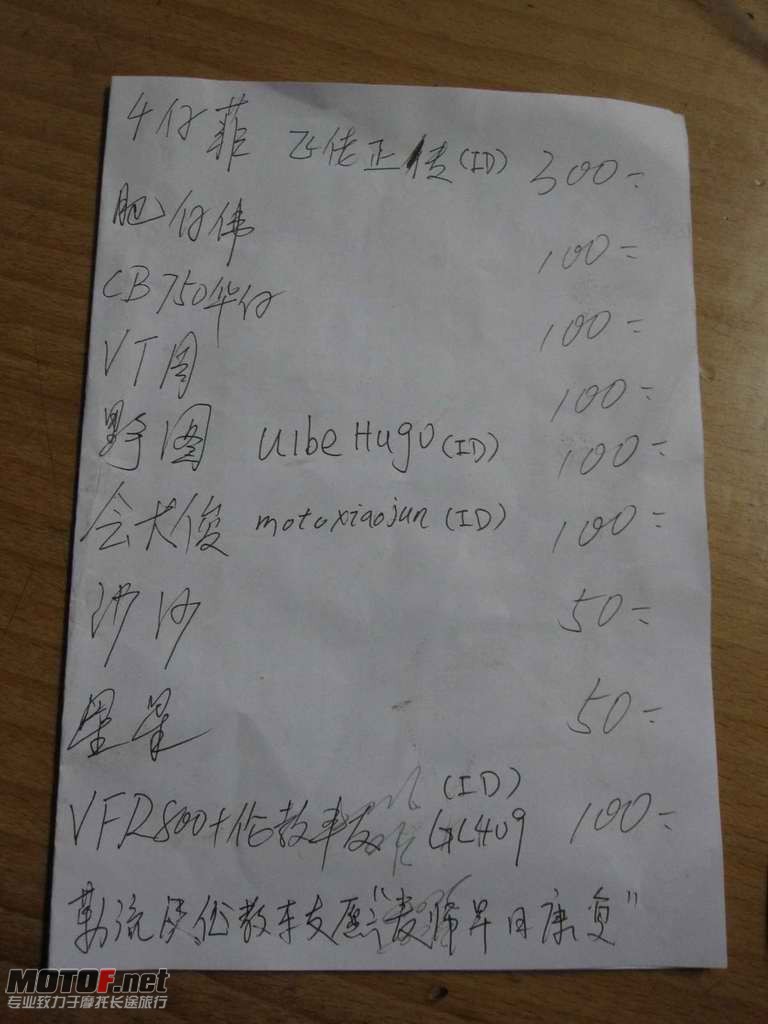 牛仔菲 飞佬正传(ID) 300-
肥仔伟 100-
CB750华仔 100-
VT周 100-
野图 UlbeHugo(ID) 100-
会大俊 motoxiaojun(ID) 100-
沙沙 50-
星星 50-
(ID)
VFR800+伦教车友 GL409 100-
勒流及伦教车友愿"麦师早日康复"
MOTOF.net
专业致力于摩托长途旅行